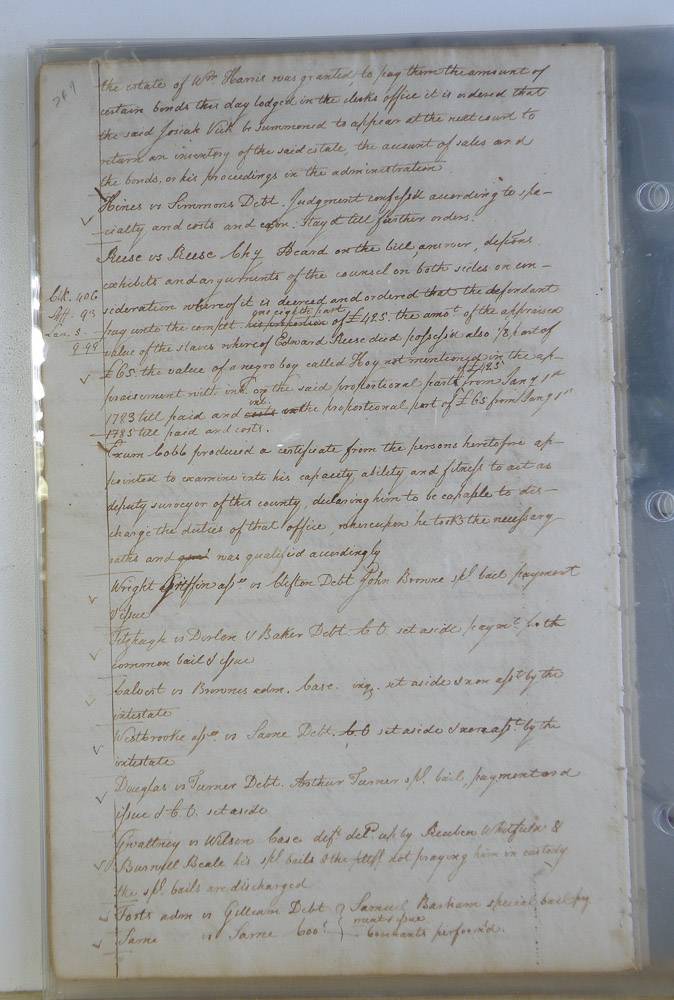 209
the estate of Wm Harris was granted to pay them the amount of
certain bonds this day lodged in the clerks office it is ordered that
the said Josiah Vick be summoned to appear at the next court to
return an inventory of the said estate, the account of sales and
the bonds, or his proceedings in the administration
Hines vs Simmons Debt. Judgment confess'd according to spe-
cialty and costs and exon. stay'd till further orders.
Reese vs Reese Chy Heard on the bill, answer, depions
exhibits and arguments of the counsel on both sides on con-
Clk. 406
sideration whereof it is decreed and ordered that the defendant
Shff. 93
one eighth part
pay unto the complt. his proportion of £425. the amot. of the appraised
Law. 5.
value of the slaves whereof Edward Reese died possess'd also 1/8 part of
9.99
£65. the value of a negro boy called Hoy not mentioned in the ap-
of £425
praisement with int. on the said proportional part from Jany 1st
int.
1783 till paid and costs on the proportional part of £65 from Jany 1st
1785 till paid and costs.
Exum Cobb produced a certificate from the persons heretofore ap-
pointed to examine into his capacity, ability and fitness to act as
deputy surveyor of this county, declaring him to be capable to dis-
charge the duties of that office, whereupon he took the necessary
oaths and was qualified accordingly
Wright Griffin asse vs Clifton Debt John Browne spl. bail payment
& issue
Fitzhugh vs Dorlon & Baker Debt. C.O. set aside paymt. both
common bail & issue
Calvert vs Brownes adm. Case. inq. set aside & non asst. by the
intestate
Westbrooke asse. vs Same Debt. C.O set aside & non asst. by the
intestate
Douglas vs Turner Debt. Arthur Turner spl. bail, payment and
issue & C.O. set aside
Gwaltney vs Wilson Case deft. deld. up by Reuben Whitfield &
Burwell Beale his spl. bails & the pltff. not praying him in custody
the spl. bails are discharged
Forts adm vs Gilliam Debt } Samuel Barham special bail pay
ment & issue
Same vs Same Covt. } Covenants perform'd.